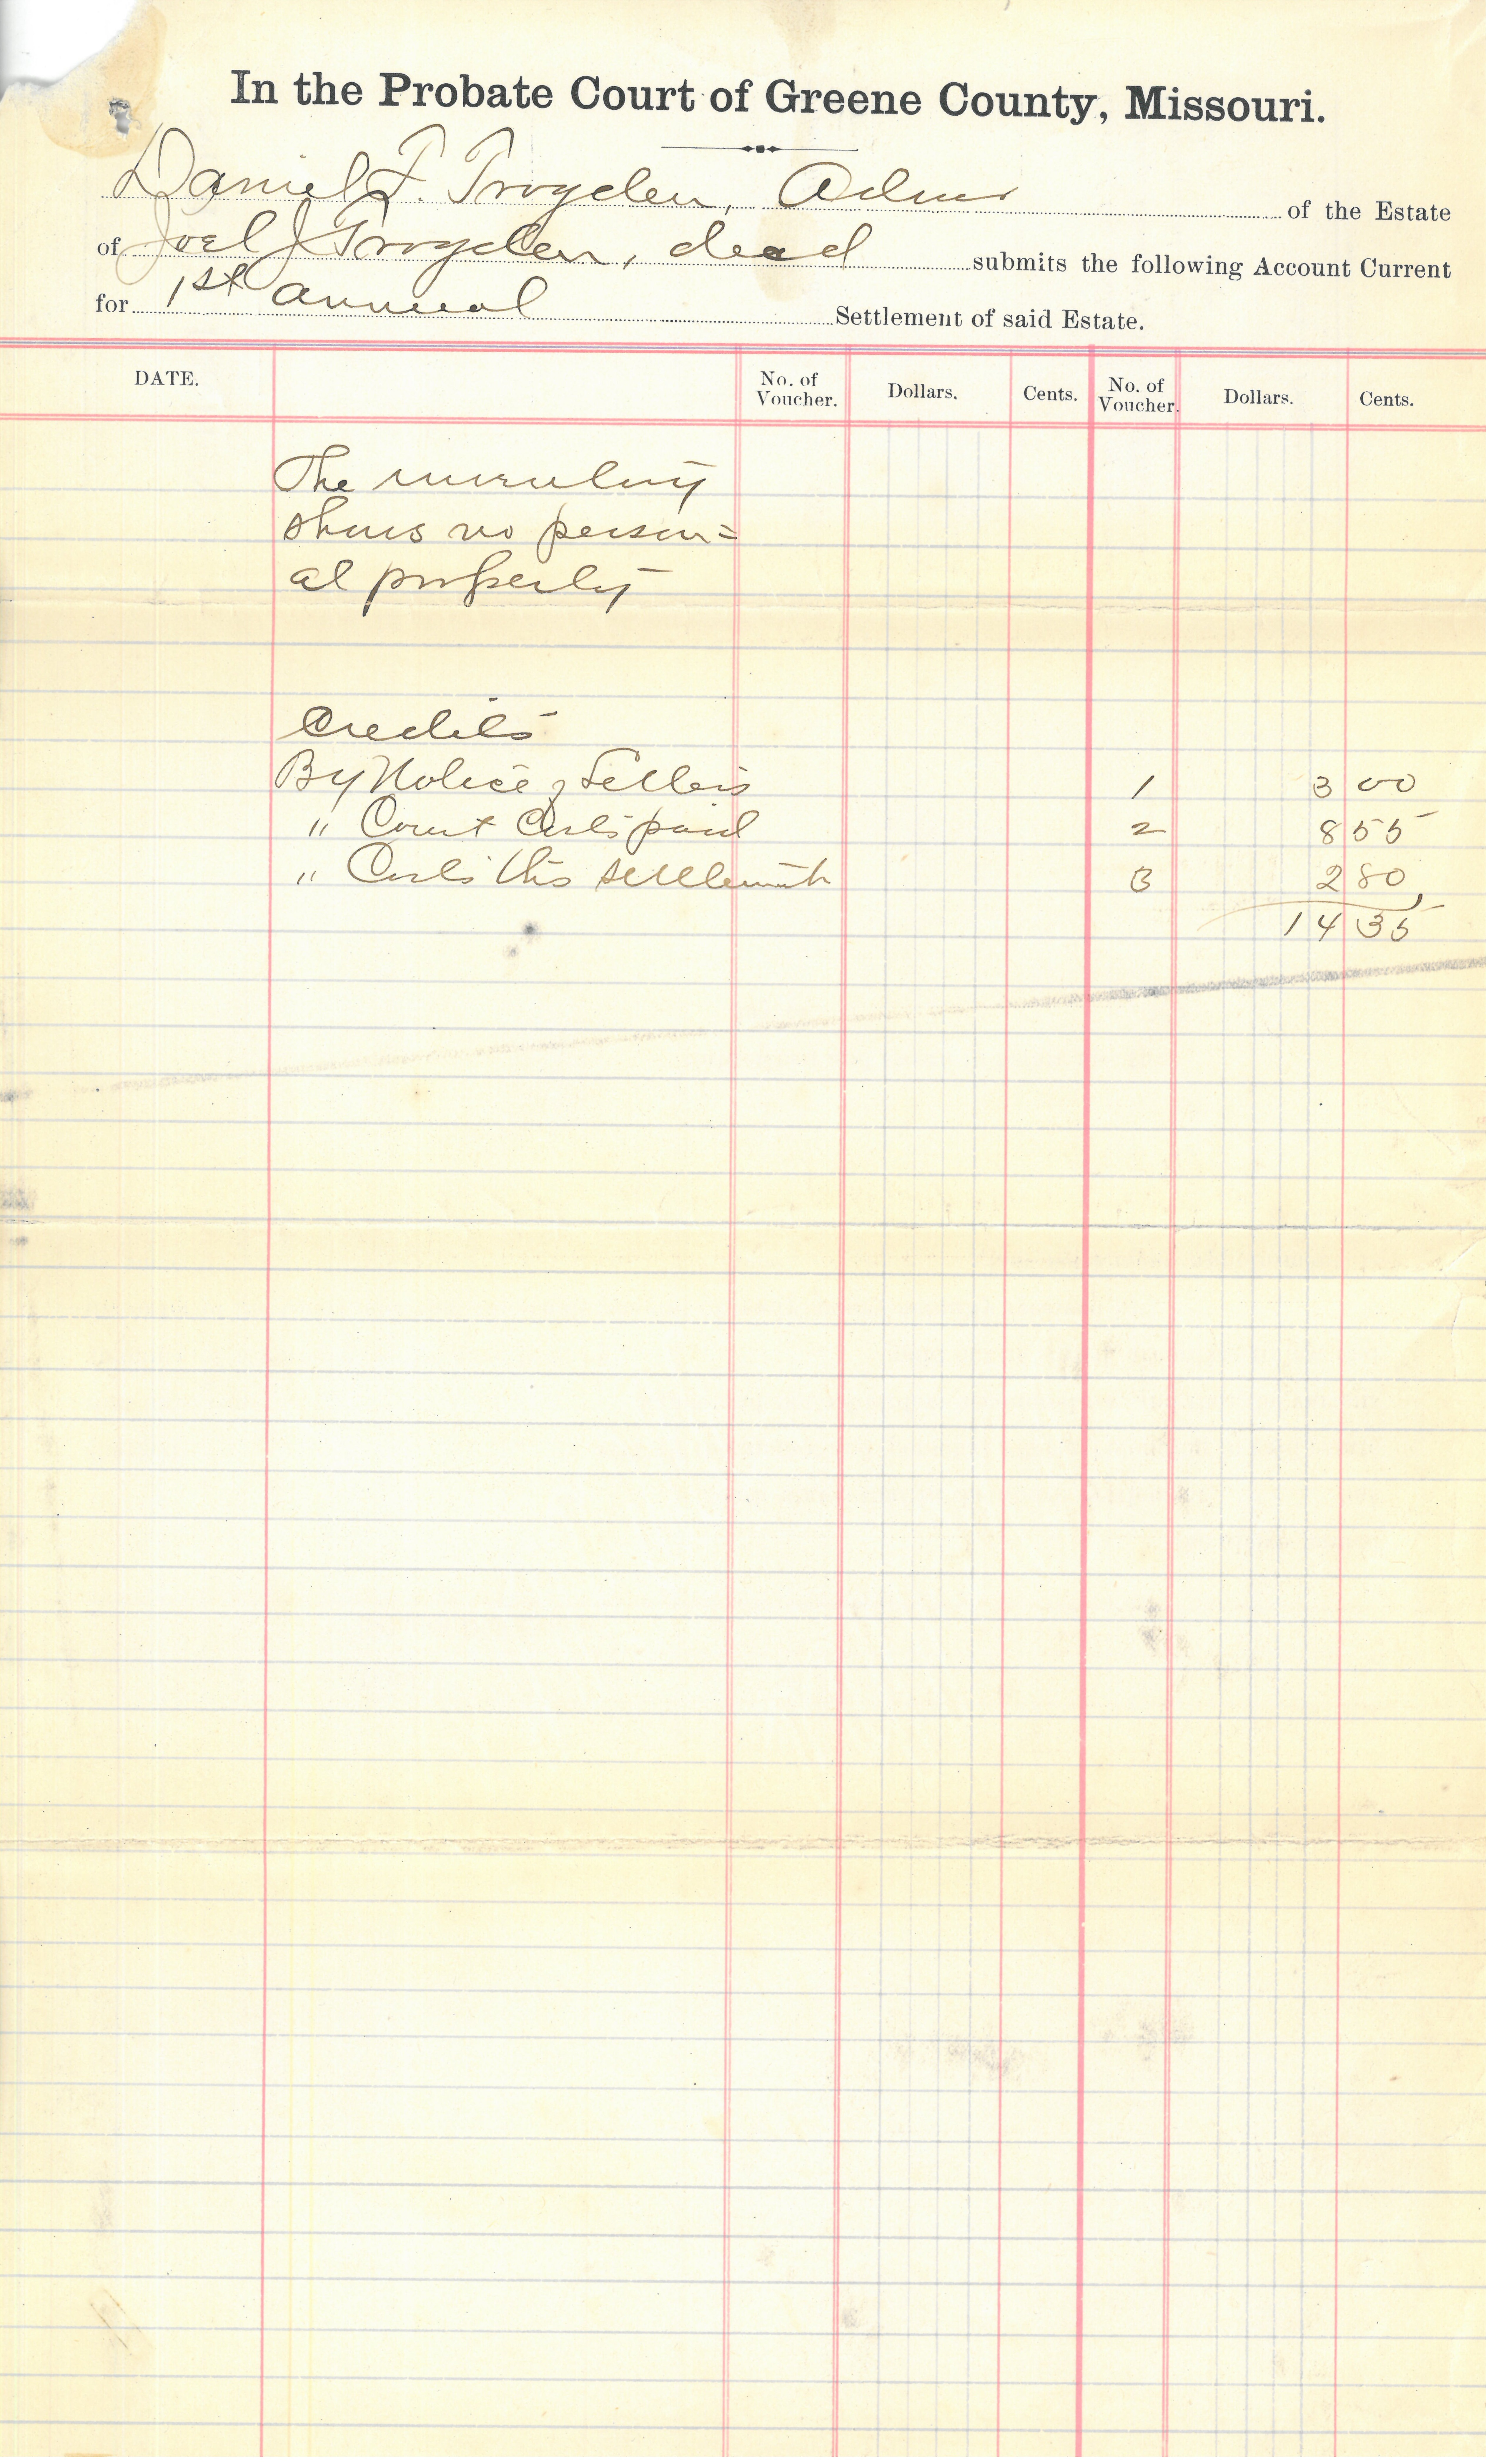 In the Probate Court of Greene County, Missouri.
Daniel F. Trogden, Admr of the Estate
of Joel J Trogden, decd submits the following Account Current
for 1st annual Settlement of said Estate.
DATE. No. of Voucher. Dollars. Cents. No. of Voucher. Dollars. Cents.
The inventory
shows no person=
al property
Credits
By Notice of Letters 1 3 00
" Court Costs paid 2 8 55
" Costs this settlement 3 2 80
14 35